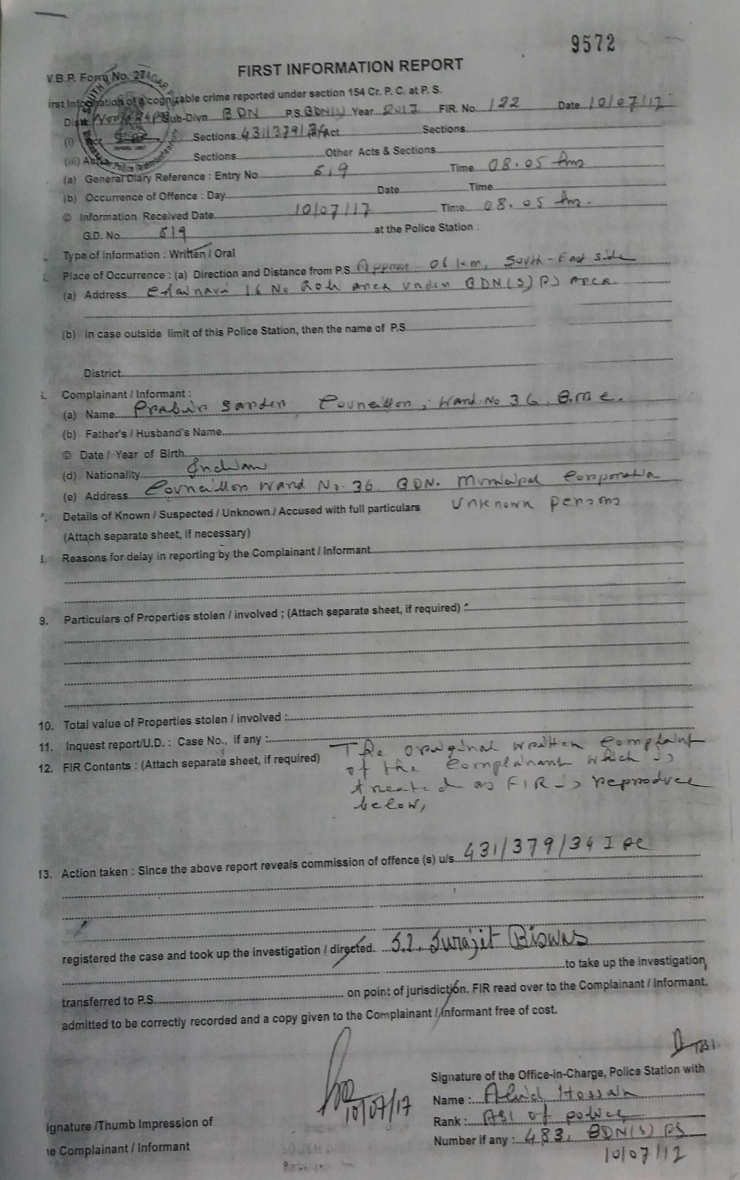 9572
W.B.P. Form No. 27
FIRST INFORMATION REPORT
First Information of a cognizable crime reported under section 154 Cr. P. C. at P. S.
Dist. Sub-Divn. BDN P.S. BDN(S) Year 2017 FIR. No 122 Date 10/07/17
(i) Sections 431/379/34 Act Sections
(iii) Act Sections Other Acts & Sections
(a) General Diary Reference : Entry No 619 Time 08.05 Am
(b) Occurrence of Offence : Day Date Time
© Information Received Date 10/07/17 Time 08.05 Am.
G.D. No. 619 at the Police Station :
Type of information : Written / Oral
Place of Occurrence : (a) Direction and Distance from P.S. Approx - 06 km, South-East side
(a) Address 16 No area under BDN(S) PS Area.
(b) in case outside limit of this Police Station, then the name of P.S.
District
Complainant / Informant :
(a) Name Councillor, Ward No 36, B.M.C.
(b) Father's / Husband's Name
© Date / Year of Birth
(d) Nationality Indian
(e) Address Councillor Ward No. 36 BDN. Municipal Corporation
Details of Known / Suspected / Unknown / Accused with full particulars Unknown persons
(Attach separate sheet, if necessary)
Reasons for delay in reporting by the Complainant / Informant
9. Particulars of Properties stolen / involved ; (Attach separate sheet, if required) :
10. Total value of Properties stolen / involved :
11. Inquest report/U.D. : Case No., if any :
12. FIR Contents : (Attach separate sheet, if required) The original written complaint
of the complainant which is
treated as FIR is reproduce
below,
13. Action taken : Since the above report reveals commission of offence (s) u/s 431/379/34 IPC
registered the case and took up the investigation / directed. S.I. Surajit Biswas
to take up the investigation
transferred to P.S. on point of jurisdiction. FIR read over to the Complainant / Informant.
admitted to be correctly recorded and a copy given to the Complainant / Informant free of cost.
10/07/17
Signature of the Office-in-Charge, Police Station with
Name : Hossain
Rank : ASI of police
Number if any : 483, BDN(S) PS
10/07/17
ignature /Thumb Impression of
e Complainant / Informant